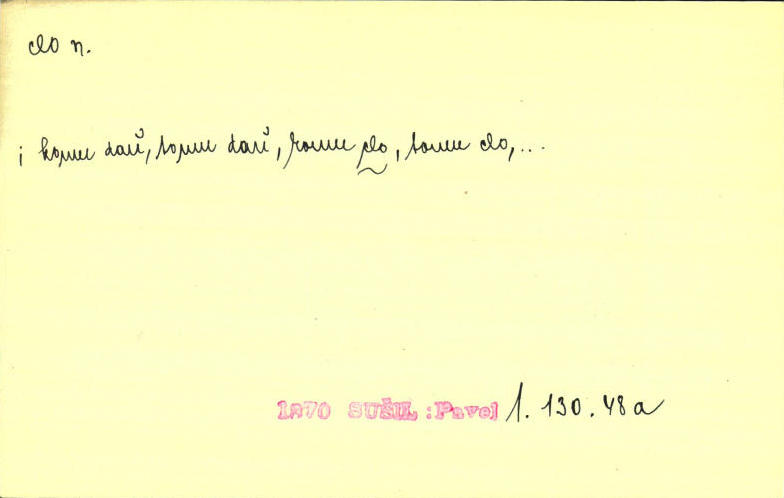 clo n.
; komu daň, tomu daň, komu clo, tomu clo, ...
1870 SUŠIL :Pavel 1. 130. 48a